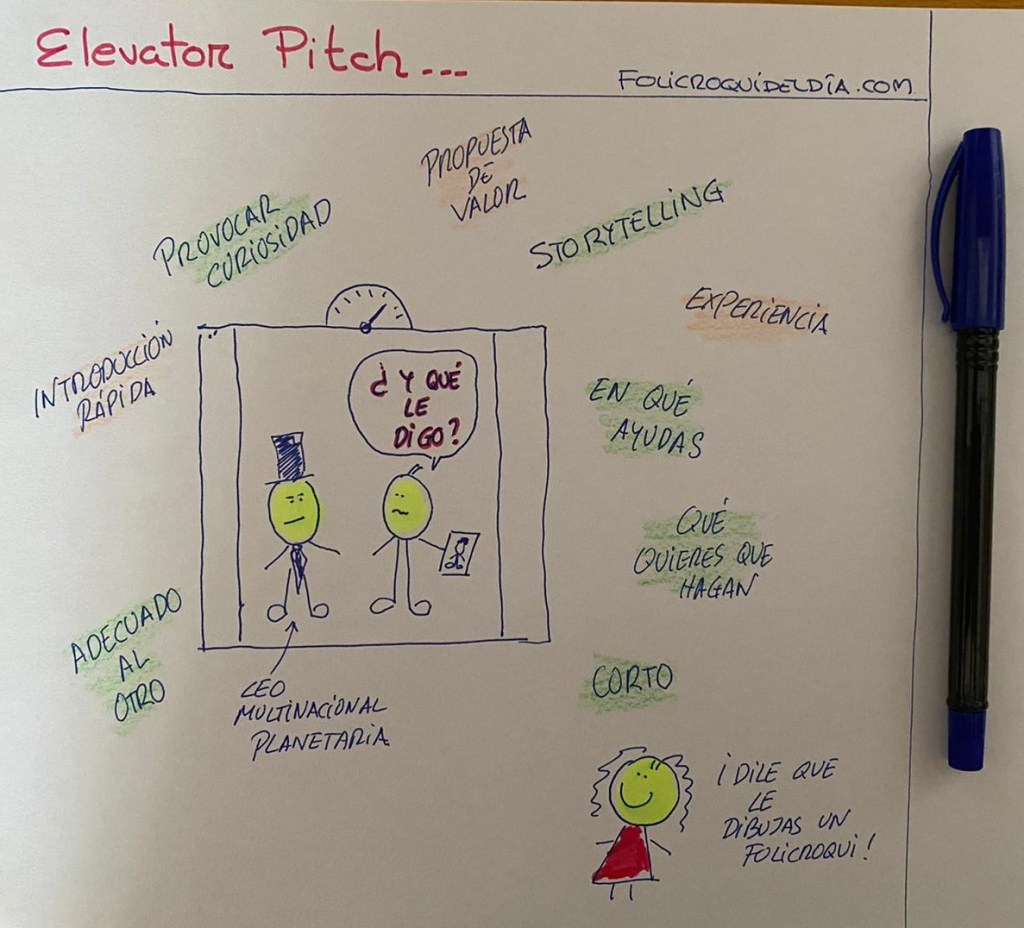 Elevator Pitch...
FOLICROQUIDELDÍA.COM
PROPUESTA
DE
VALOR
PROVOCAR
CURIOSIDAD
STORYTELLING
EXPERIENCIA
INTRODUCCIÓN
RÁPIDA
¿Y QUÉ
LE
DIGO?
EN QUÉ
AYUDAS
QUÉ
QUIERES QUE
HAGAN
ADECUADO
AL
OTRO
CEO
MULTINACIONAL
PLANETARIA
CORTO
¡DILE QUE
LE
DIBUJAS UN
FOLICROQUI!